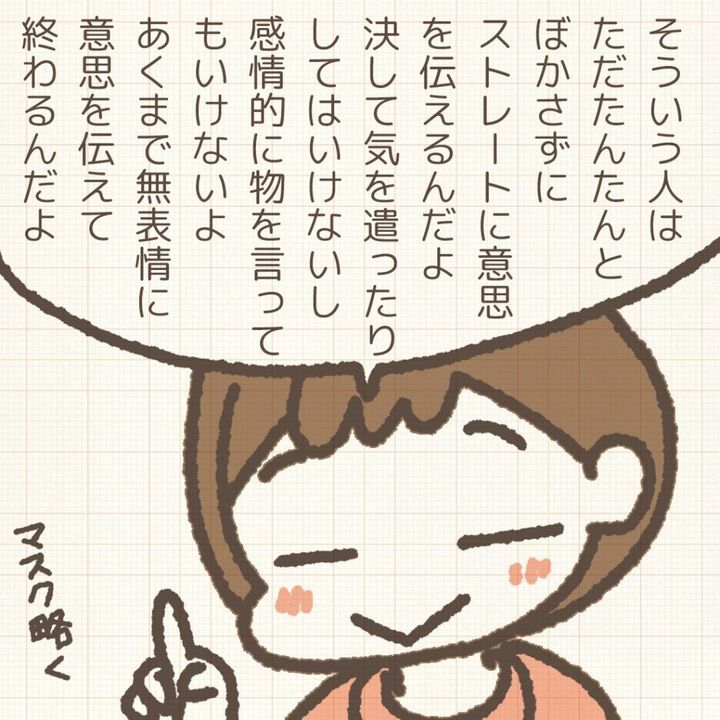 そういう人は
ただたんたんと
ぼかさずに
ストレートに意思
を伝えるんだよ
決して気を遣ったり
してはいけないし
感情的に物を言って
もいけないよ
あくまで無表情に
意思を伝えて
終わるんだよ
マスク略く